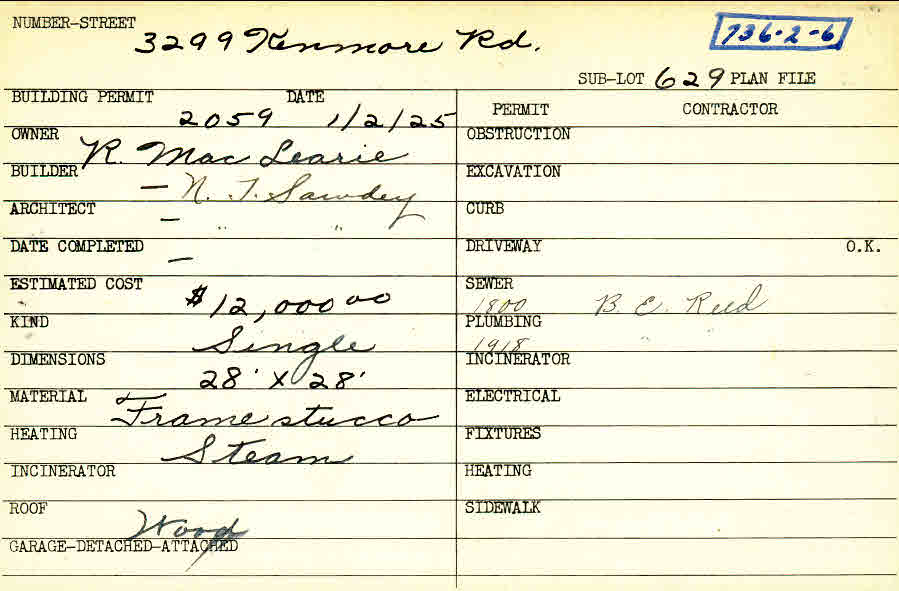 NUMBER-STREET
3299 Kenmore Rd.
736-2-6
SUB-LOT 629 PLAN FILE
BUILDING PERMIT DATE
2059 1/2/25
OWNER
R. Mac Learie
BUILDER
— N. T. Sawdey
ARCHITECT
— " "
DATE COMPLETED
—
ESTIMATED COST
$12,000 00
KIND
Single
DIMENSIONS
28' X 28'
MATERIAL
Frame stucco
HEATING
Steam
INCINERATOR
ROOF
Wood
GARAGE-DETACHED-ATTACHED
PERMIT CONTRACTOR
OBSTRUCTION
EXCAVATION
CURB
DRIVEWAY O.K.
SEWER
1800 B. E. Reed
PLUMBING
1918 "
INCINERATOR
ELECTRICAL
FIXTURES
HEATING
SIDEWALK